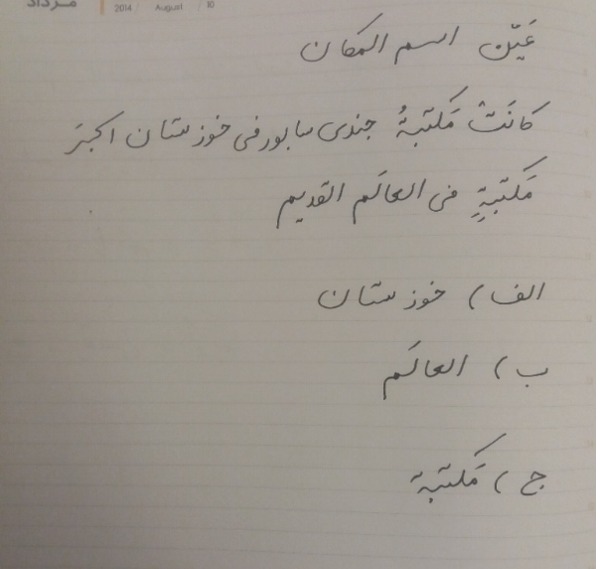 مرداد 2014 / August / 10
عَیّن اسم المکان
کانَتْ مَکتبةُ جندی سابور فی خوزستان اکبرَ
مَکتبةٍ فی العالَم القدیم
الف) خوزستان
ب) العالَم
ج) مَکتبة